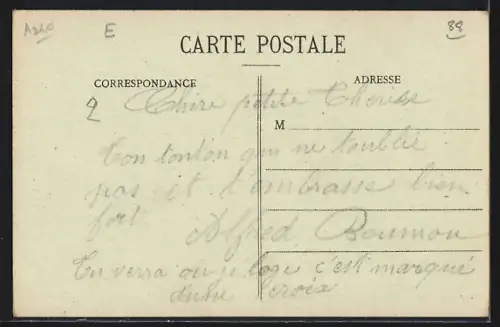 A210 E 88
CARTE POSTALE
CORRESPONDANCE
ADRESSE
2 Chère petite Thérèse
M
Ton tonton qui ne t'oublie
pas et t'embrasse bien
fort
Alfred
Tu verra ou je loge c'est marqué
d'une croix